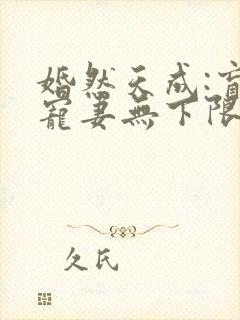 婚然天成:盲
寵妻無下限
久氏